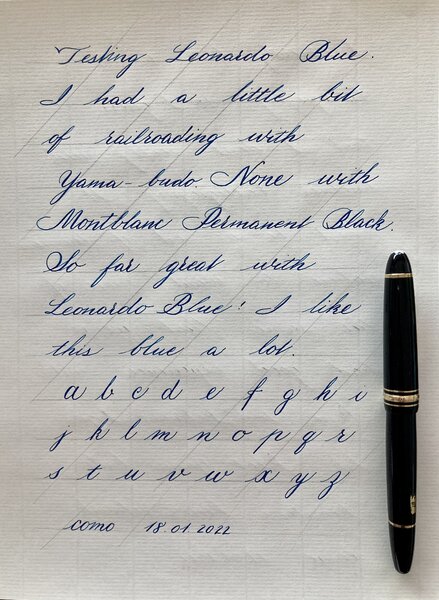 Testing Leonardo Blue.
I had a little bit
of railroading with
Yama-budo. None with
Montblanc Permanent Black.
So far great with
Leonardo Blue! I like
this blue a lot.
a b c d e f g h i
j k l m n o p q r
s t u v w x y z
como 18.01.2022